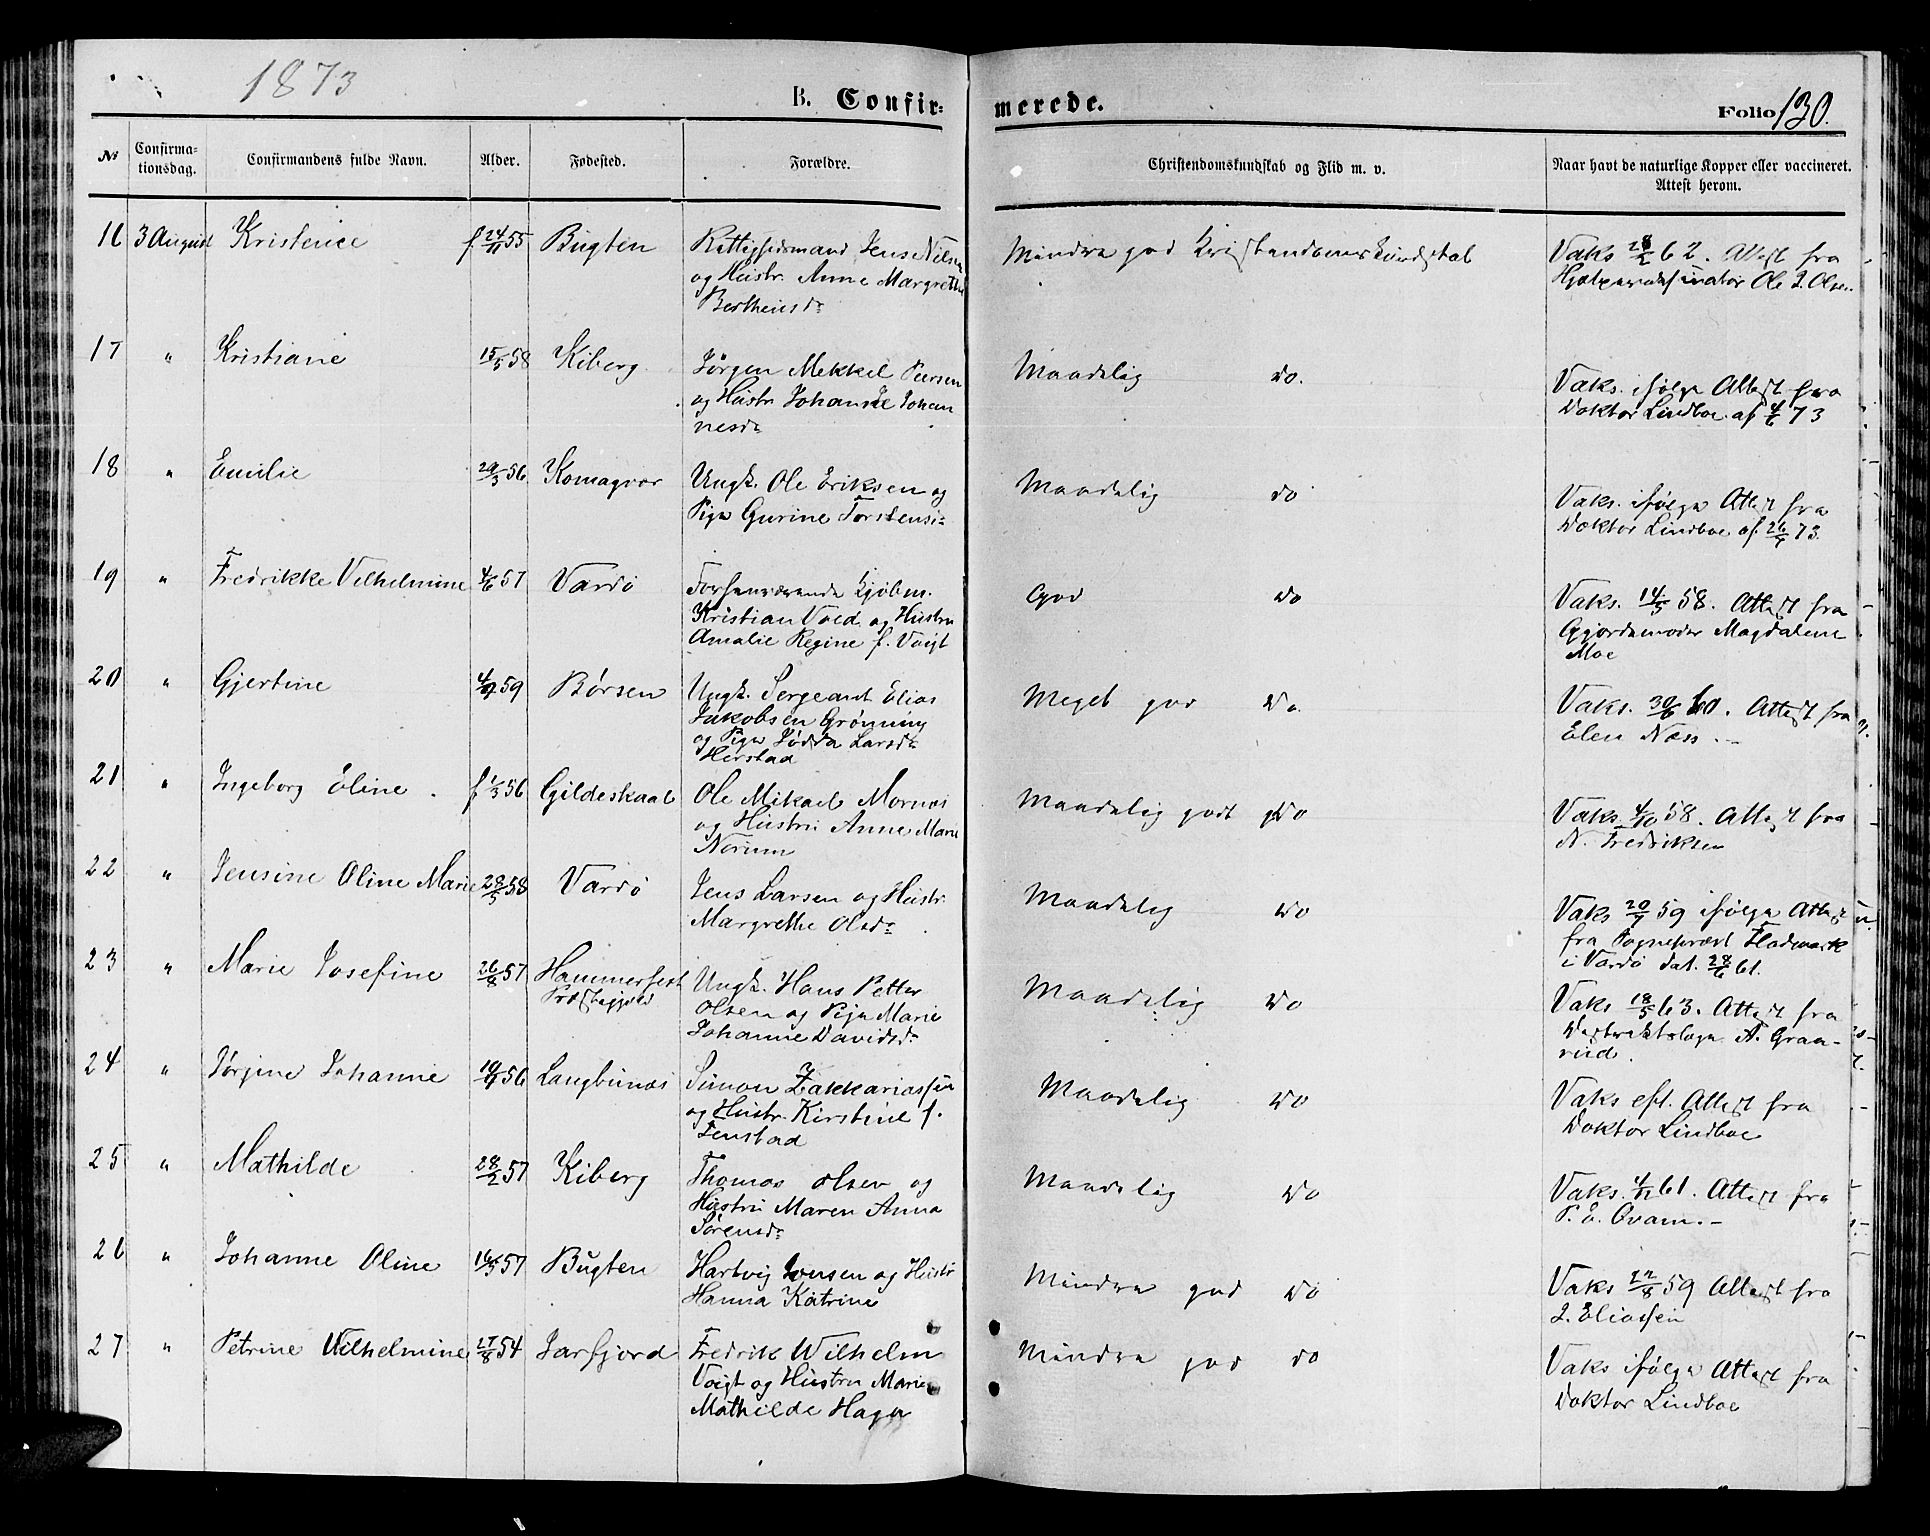 1873
B. Confirmerede.
Folio 130.
№ Confirmationsdag. Confirmandens fulde Navn. Alder. Fødested. Forældre. Christendomskundskab og Flid m. v. Naar havt de naturlige Kopper eller vaccineret. Attest herom.
16 3 August Kristence f. 24/11 55 Bugten Rettighedsmand Jens Nilsen Mindre god Kristendomskundskab Vaks 28/2 62. Attest fra
og Hustr. Anne Margrethe Hjælpevaksinatør Ole J. Olsen
Bertheusdr
17 " Kristiane 15/5 58 Kiberg Jørgen Mekkel Persen Maadelig do. Vaks. ifølge Attest fra
og Hustr Johanne Johan Doktor Lindboe af 4/6 73
nesdr
18 " Emilie 29/3 56 Komagvær Ungk. Ole Eriksen og Maadelig do Vaks. ifølge Attest fra
Pige Gurine Torstensr Doktor Lindboe af 26/7 73.
19 " Fredrikke Vilhelmine 4/6 57 Vardö Forhenværende Kjøbm. God do Vaks. 14/5 58. Attest fra
Kristian Void og Hustru Gjordemoder Magdalene
Amalie Regine f. Voigt Moe
20 " Gjertine 59 Børsen Ungk. Sergeant Elias Meget god do. Vaks. 30/6 60. Attest fra
Jakobsen Grønning Elen Næss.-
og Pige Lars dr
Herstad
21 " Ingeborg Eline. f 1/3 56 Gildeskaal Ole Mikael Mornæs Maadelig godt do Vaks. 4/10 58. Attest fra
og Hustru Anne Marie N. Fredriksen
Norum
22 " Jensine Oline Marie 28/5 58 Vardö Jens Larsen og Hustr. Maadelig do Vaks 20/7 59 ifølge Attest
Margrethe Olsdr fra Sogneprest Flodmark
i Vardø dat. 28/6 61.
23 " Marie Josefine 26/8 57 Hammerfest Ungk. Hans Petter Maadelig do Vaks 18/5 63. Attest fra
Præstegjeld Olsen og Pige Marie Destriktslæge A. Graa-
Johanne Davidsdr rud.
24 " Jørgine Johanne 56 Langbunæs Simon Zakkariassen Maadelig do Vaks eft. Attest fra
og Hustr. Kirstine f. Doktor Lindboe
Fenstad
25 " Mathilde 28/2 57 Kiberg Thomas Olsen og Maadelig do Vaks. 4/12 61. Attest fra
Hustru Maren Anna
Sørensdr
26 " Johanne Oline 16/5 57 Bugten Hartvig Jensen og Hustr Mindre god do Vaks 22/8 59 Attest fra
Hanna Katrine J. Eliassen
27 " Petrine Vilhelmine 27/8 54 Jarfjord Fredrik Wilhelm Mindre god do Vaks ifølge Attest fra
Voigt og Hustru Marie Doktor Lindboe
Mathilde Hagen